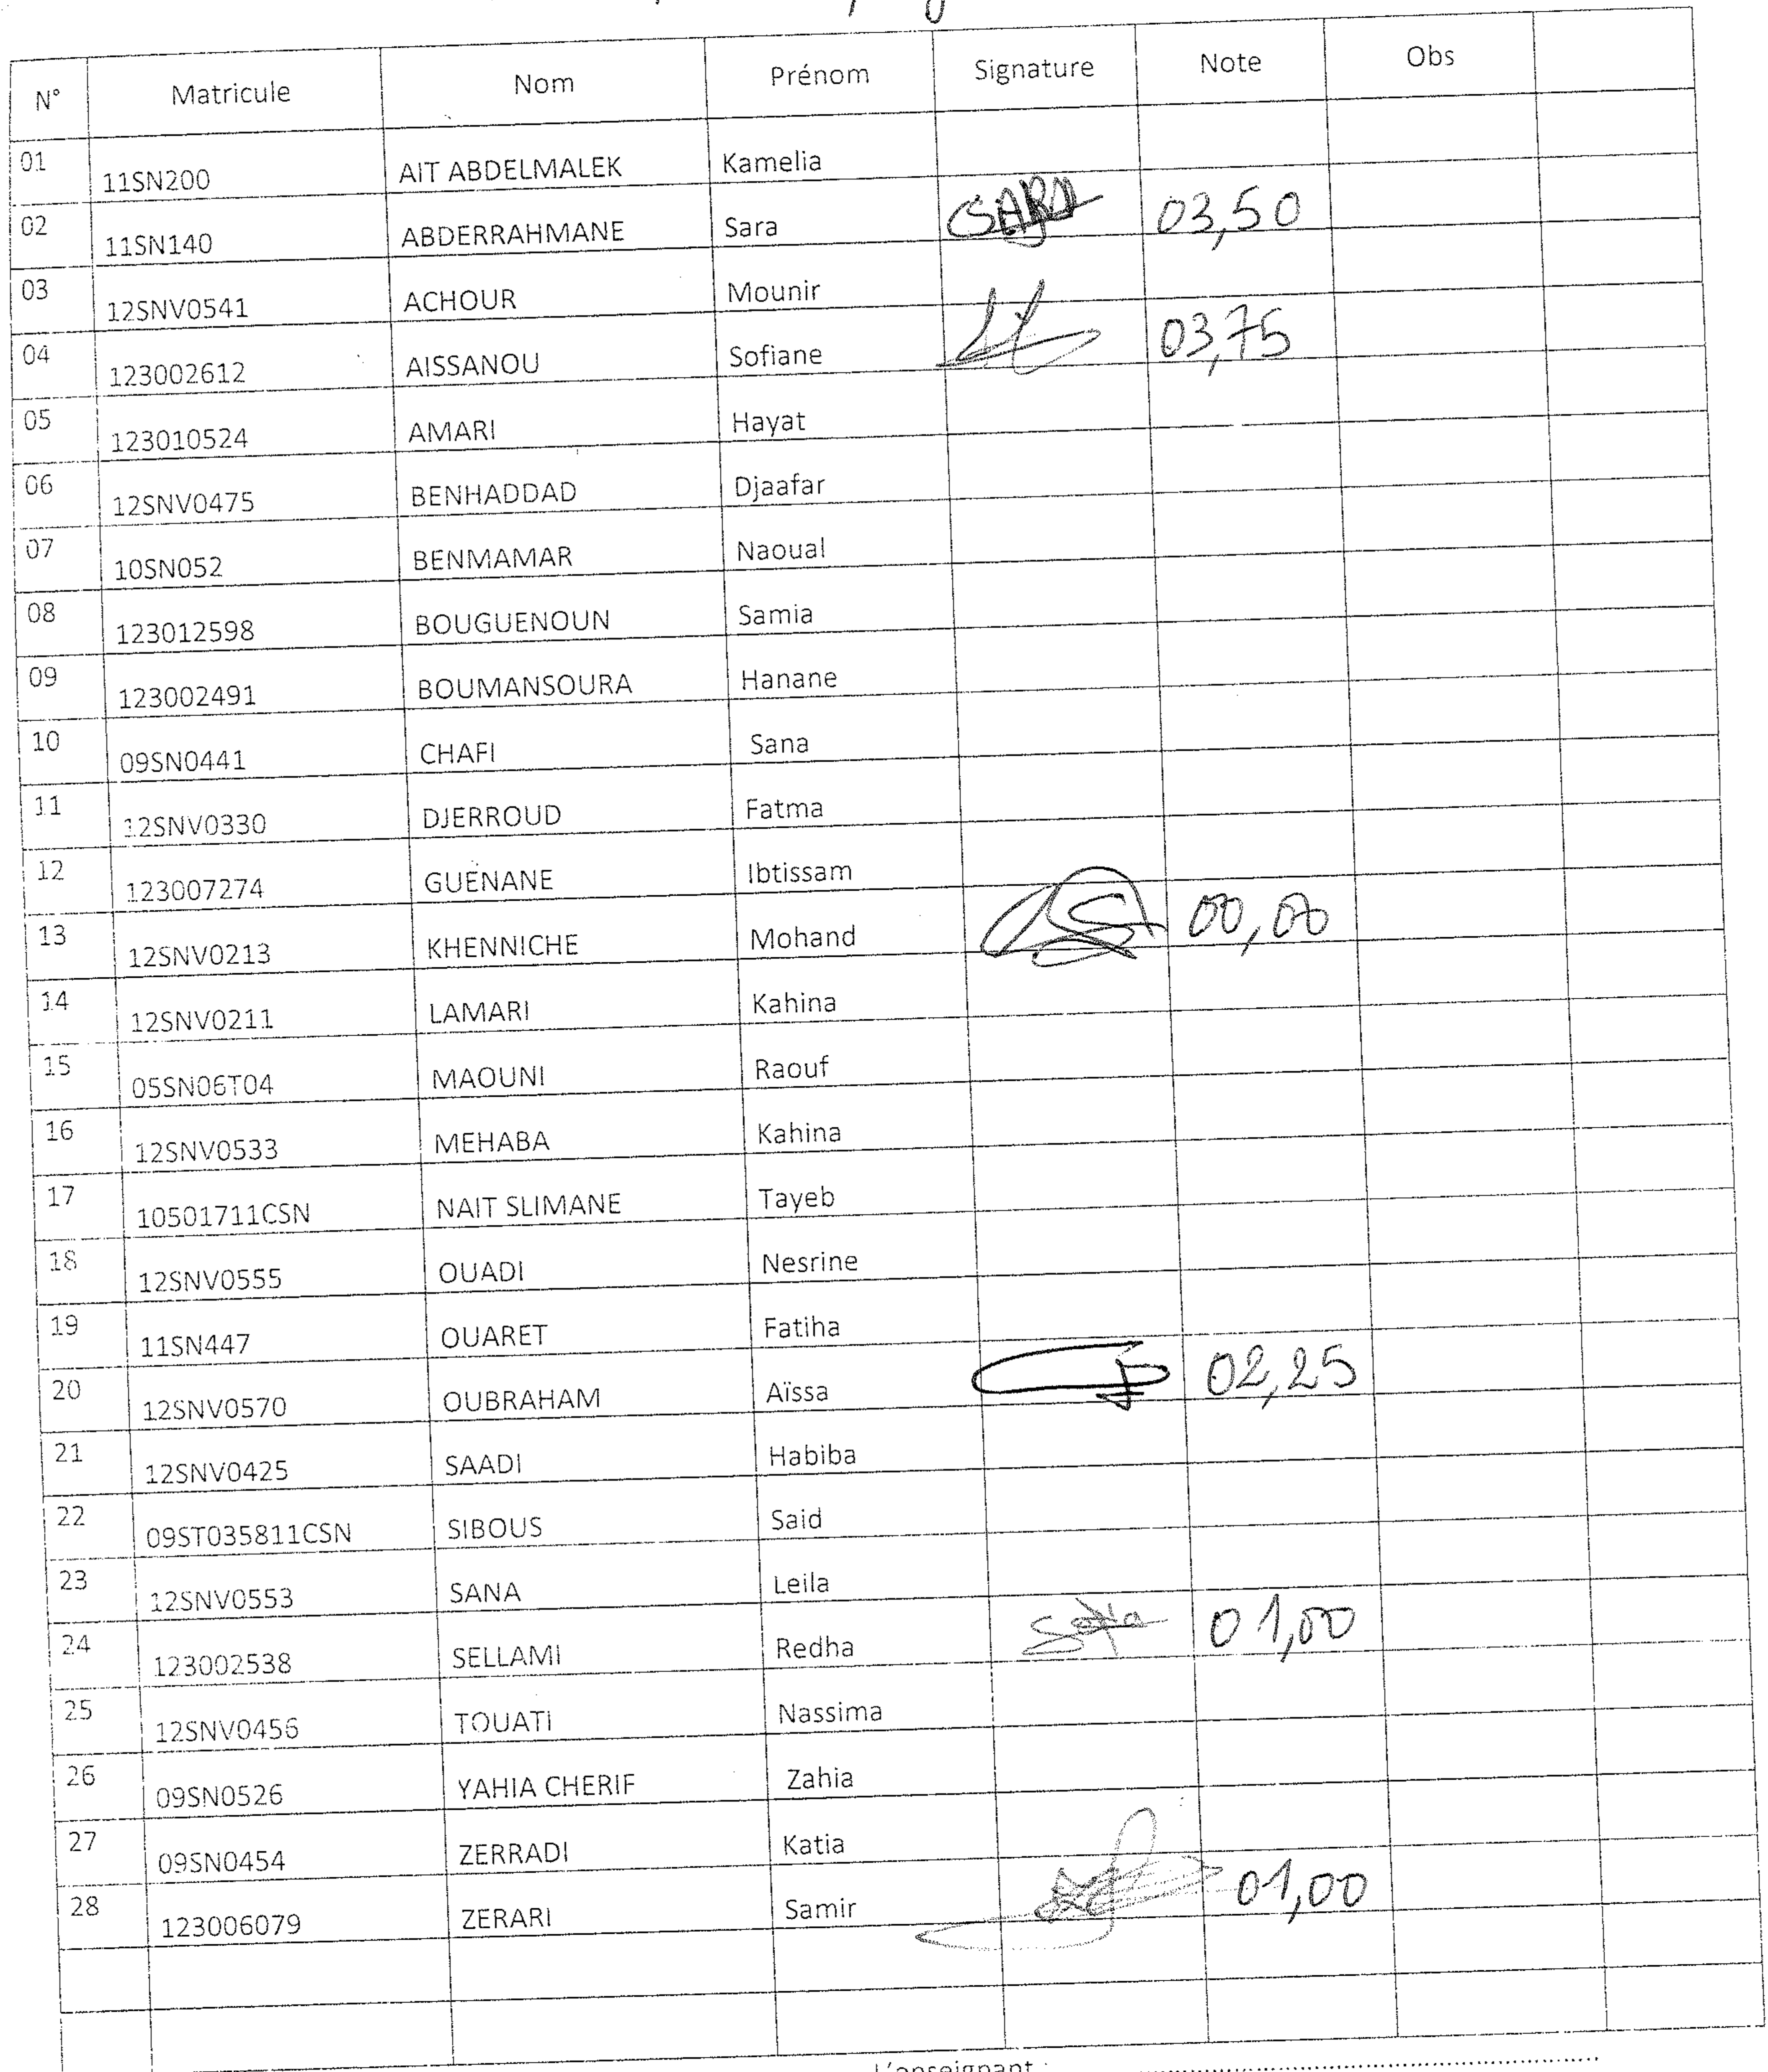 N° Matricule Nom Prénom Signature Note Obs
01 11SN200 AIT ABDELMALEK Kamelia
02 11SN140 ABDERRAHMANE Sara SARA 03,50
03 12SNV0541 ACHOUR Mounir
04 123002612 AISSANOU Sofiane 03,75
05 123010524 AMARI Hayat
06 12SNV0475 BENHADDAD Djaafar
07 10SN052 BENMAMAR Naoual
08 123012598 BOUGUENOUN Samia
09 123002491 BOUMANSOURA Hanane
10 09SN0441 CHAFI Sana
11 12SNV0330 DJERROUD Fatma
12 123007274 GUENANE Ibtissam
13 12SNV0213 KHENNICHE Mohand 00,00
14 12SNV0211 LAMARI Kahina
15 05SN06T04 MAOUNI Raouf
16 12SNV0533 MEHABA Kahina
17 10501711CSN NAIT SLIMANE Tayeb
18 12SNV0555 OUADI Nesrine
19 11SN447 OUARET Fatiha
20 12SNV0570 OUBRAHAM Aïssa 02,25
21 12SNV0425 SAADI Habiba
22 09ST035811CSN SIBOUS Said
23 12SNV0553 SANA Leila
24 123002538 SELLAMI Redha 01,00
25 12SNV0456 TOUATI Nassima
26 09SN0526 YAHIA CHERIF Zahia
27 09SN0454 ZERRADI Katia
28 123006079 ZERARI Samir 01,00
L'enseignant :